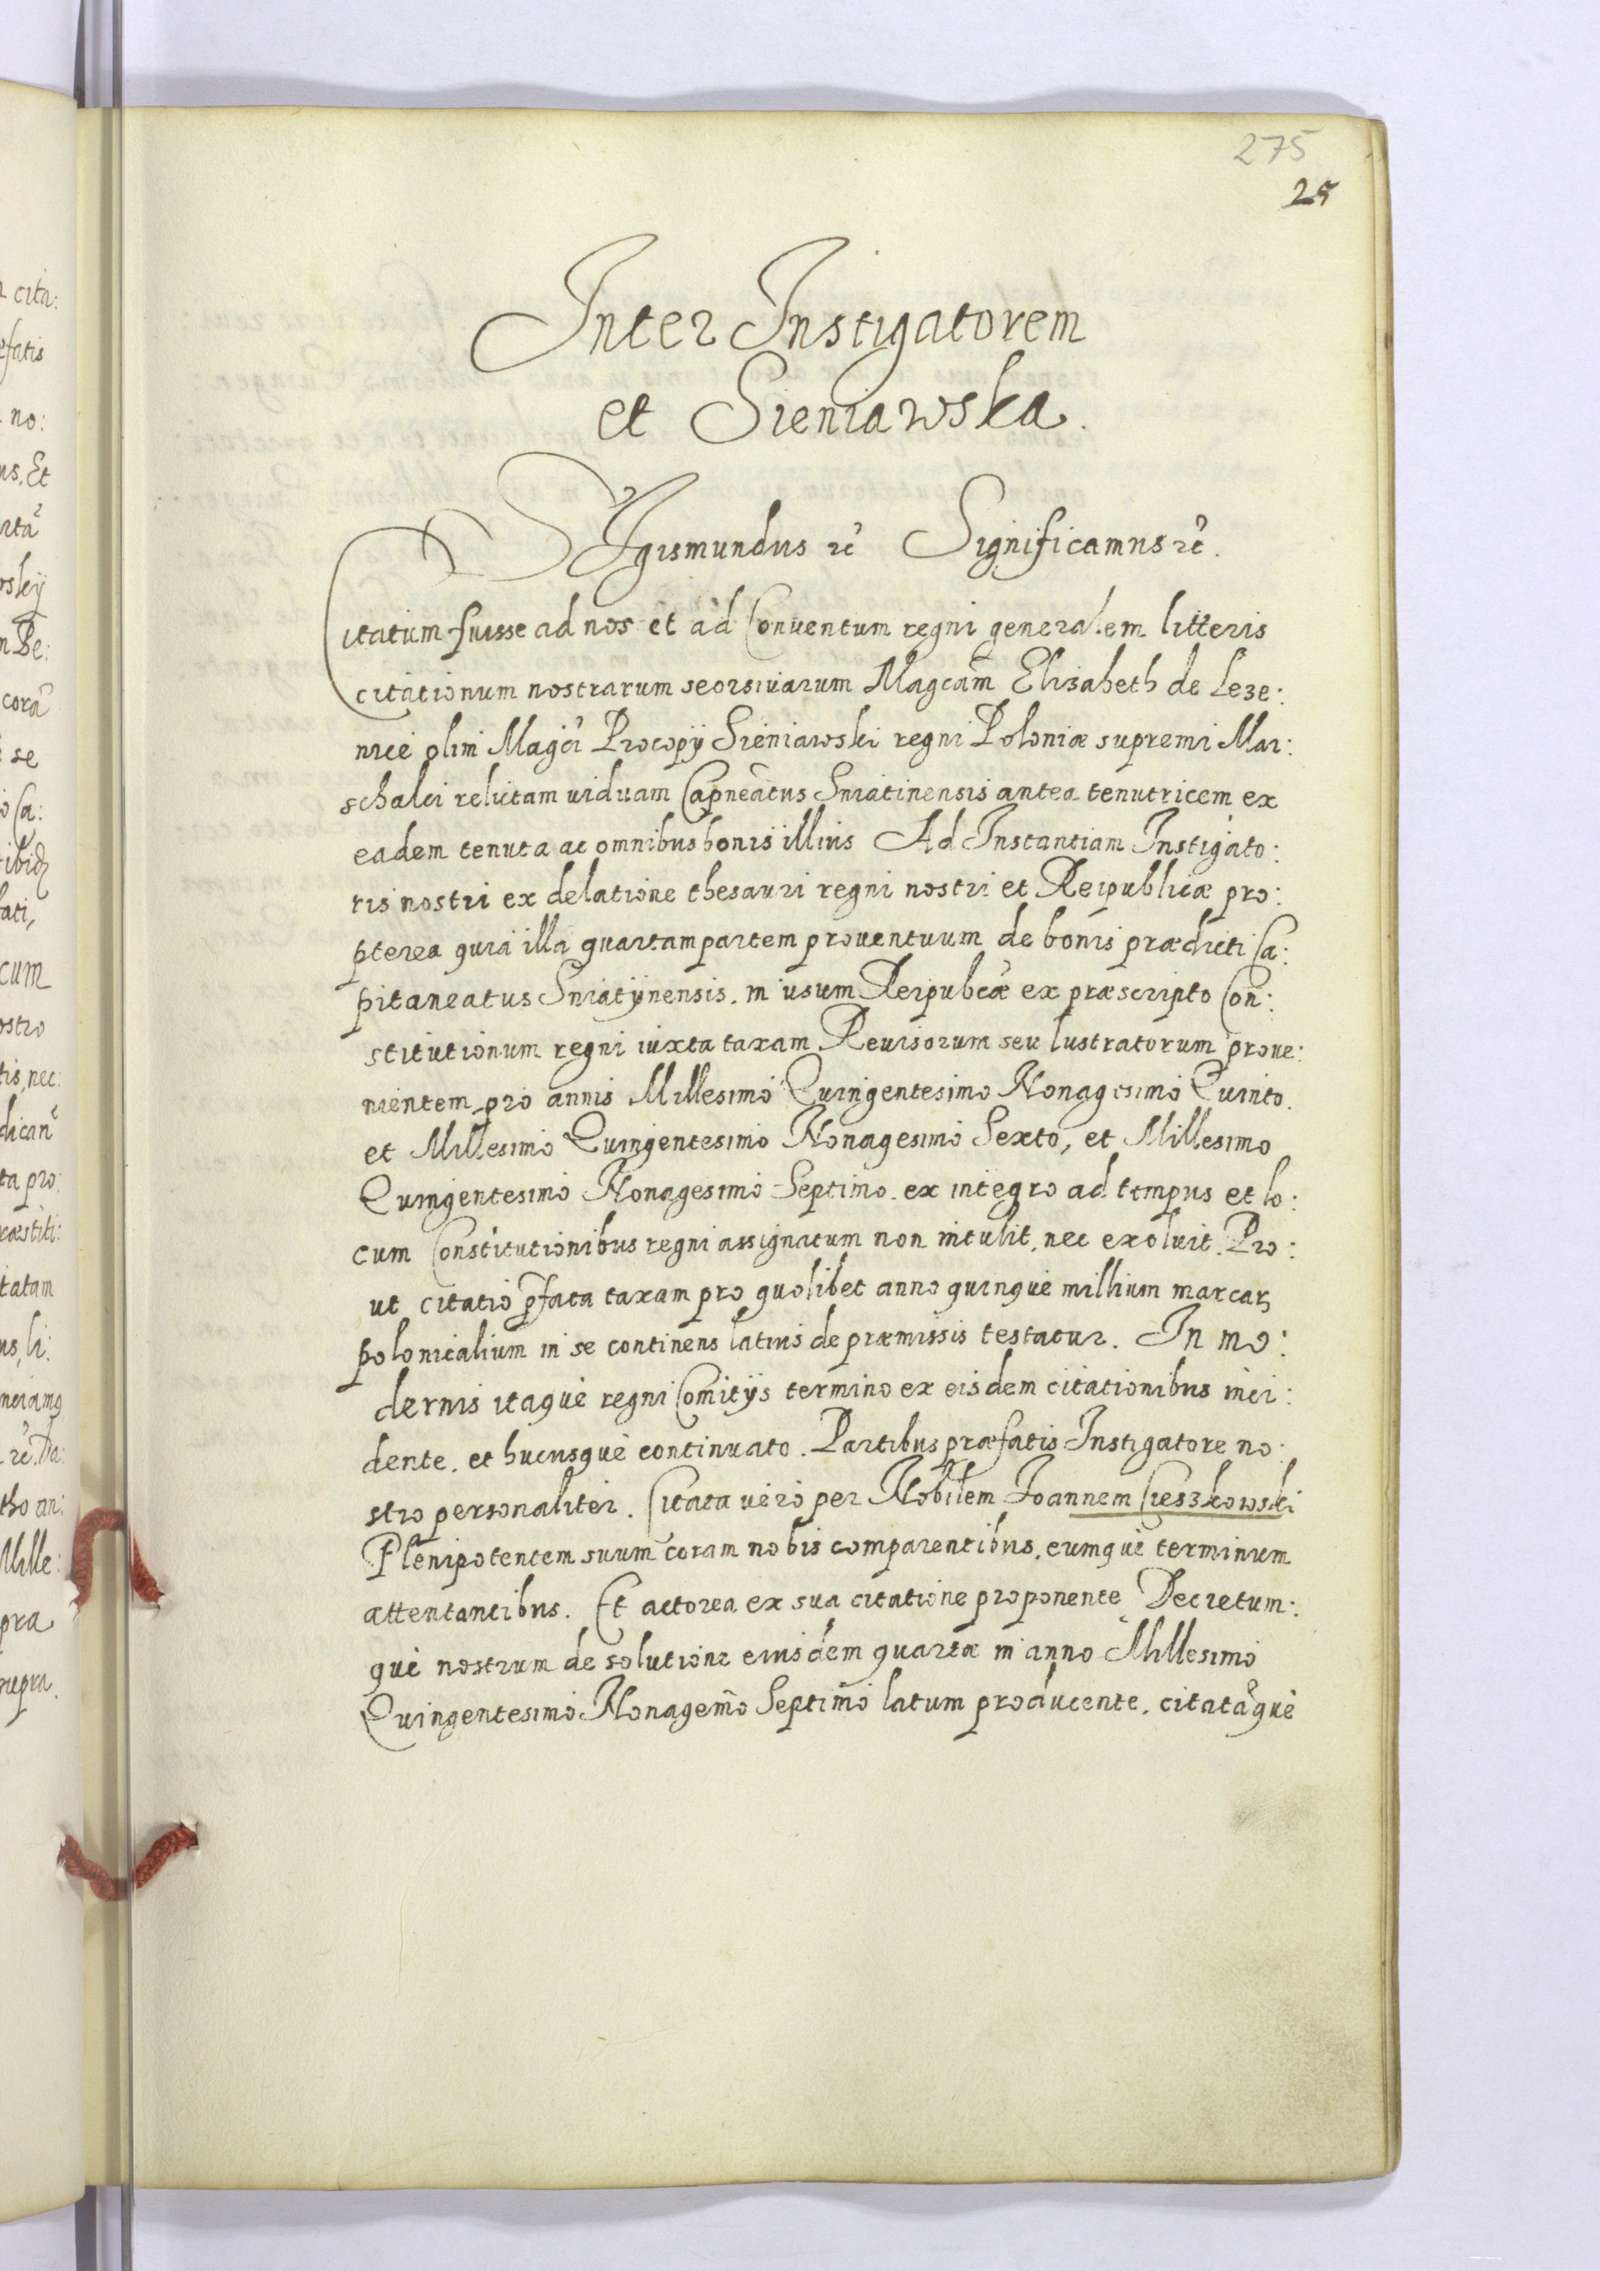 275
25
Inter Instigatorem
et Sieniawska.
SIgismundus etc̃ Significamus etc̃.
Citatum fuisse ad nos et ad Conventum regni generalem litteris
citationum nostrarum seorsivarum Magcam̃ Elisabeth de Leze:
nice olim Magci Procopÿ Sieniawski regni Poloniæ supremi Mar:
schalci relictam viduam Capneatus Sniatinensis antea tenutricem ex
eadem tenuta ac omnibus bonis illius Ad Instantiam Instigato:
ris nostri ex delatione thesauri regni nostri et Reipublicæ pro:
pterea quia illa quartam partem proventuum de bonis prædicti Ca:
pitaneatus Sniatÿnensis. in usum Reipubcæ ex præscripto Con:
stitutionum regni iuxta taxam Revisorum seu lustratorum prove:
nientem pro annis Millesimo Quingentesimo Nonagesimo Quinto.
et Millesimo Quingentesimo Nonagesimo Sexto, et Millesimo
Quingentesimo Nonagesimo Septimo. ex integro ad tempus et lo:
cum Constitutionibus regni assignatum non intulit, nec exoluit. Pro:
ut citatio pfata taxam pro quolibet anno quinque millium marcarꝝ
polonicalium in se continens latius de præmissis testatur. In mo:
dernis itaque regni Comitÿs termino ex eisdem citationibus inci:
dente. et hucusque continuato. Partibus præfatis Instigatore no:
stro personaliter. Citata vero per Nobilem Joannem Cieszkowski
Plenipotentem suum coram nobis comparentibus, eumque terminum
attentantibus. Et actorea ex sua citatione proponente Decretum:
que nostrum de solutione eiusdem quartæ in anno Millesimo
Quingentesimo Nonagem̃o Septimo latum producente. citataque